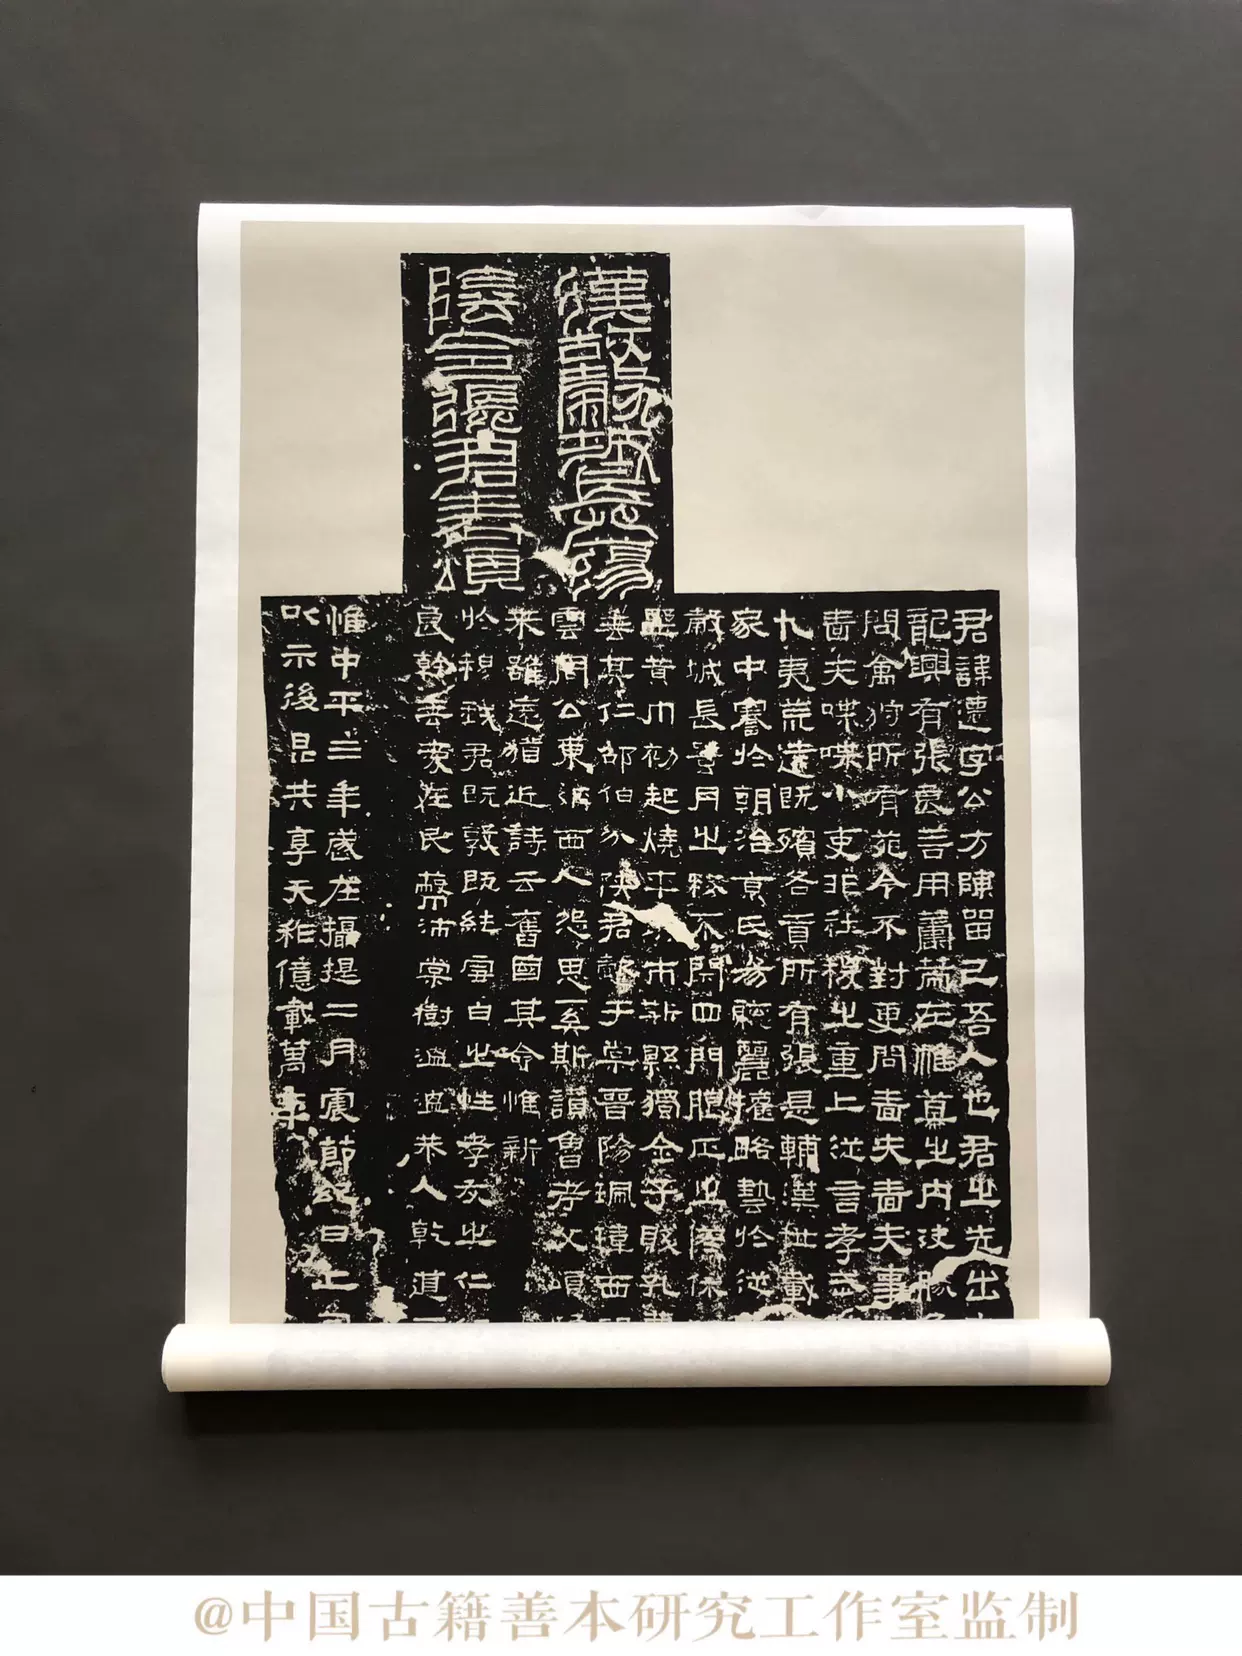 漢故穀城長蕩
陰令張君表頌
君諱遷字公方陳留己吾人也君之先出
龍興有張良善用籌策在帷幕之內決勝
問禽狩所有苑令不對更問嗇夫嗇夫事
嗇夫喋喋小吏非社稷之重上從言孝武
九夷荒遠既殯各貢所有張是輔漢世載
家中謇於朝治京氏易聰麗權略藝於從
穀城長蠶月之務不閉四門臘正之際休
聖黃巾初起燒平城市斯縣獨全子賤孔蔑
善其仁邵伯分陝君懿于棠晉陽珮瑋西
雲周公東征西人怨思奚斯讚魯考父頌
來雖遠猶近詩云舊國其命惟新
於穆我君既敦既純雪白之性孝友之仁
良幹垂愛在民蔽沛棠樹溫溫恭人乾道
惟中平三年歲在攝提二月震節紀日上旬
以示後昆共享天祚億載萬年
@中国古籍善本研究工作室监制